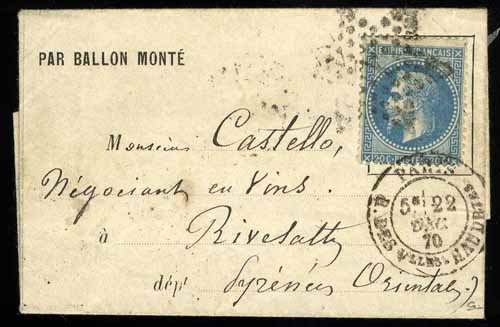 EMPIRE FRANÇAIS
PAR BALLON MONTÉ
Monsieur Castello,
Négociant en Vins.
à Rivesaltes
dépt Pyrénées Orientales
PARIS
5E 22
DEC
70
R. DES Vlles HAUDRtes